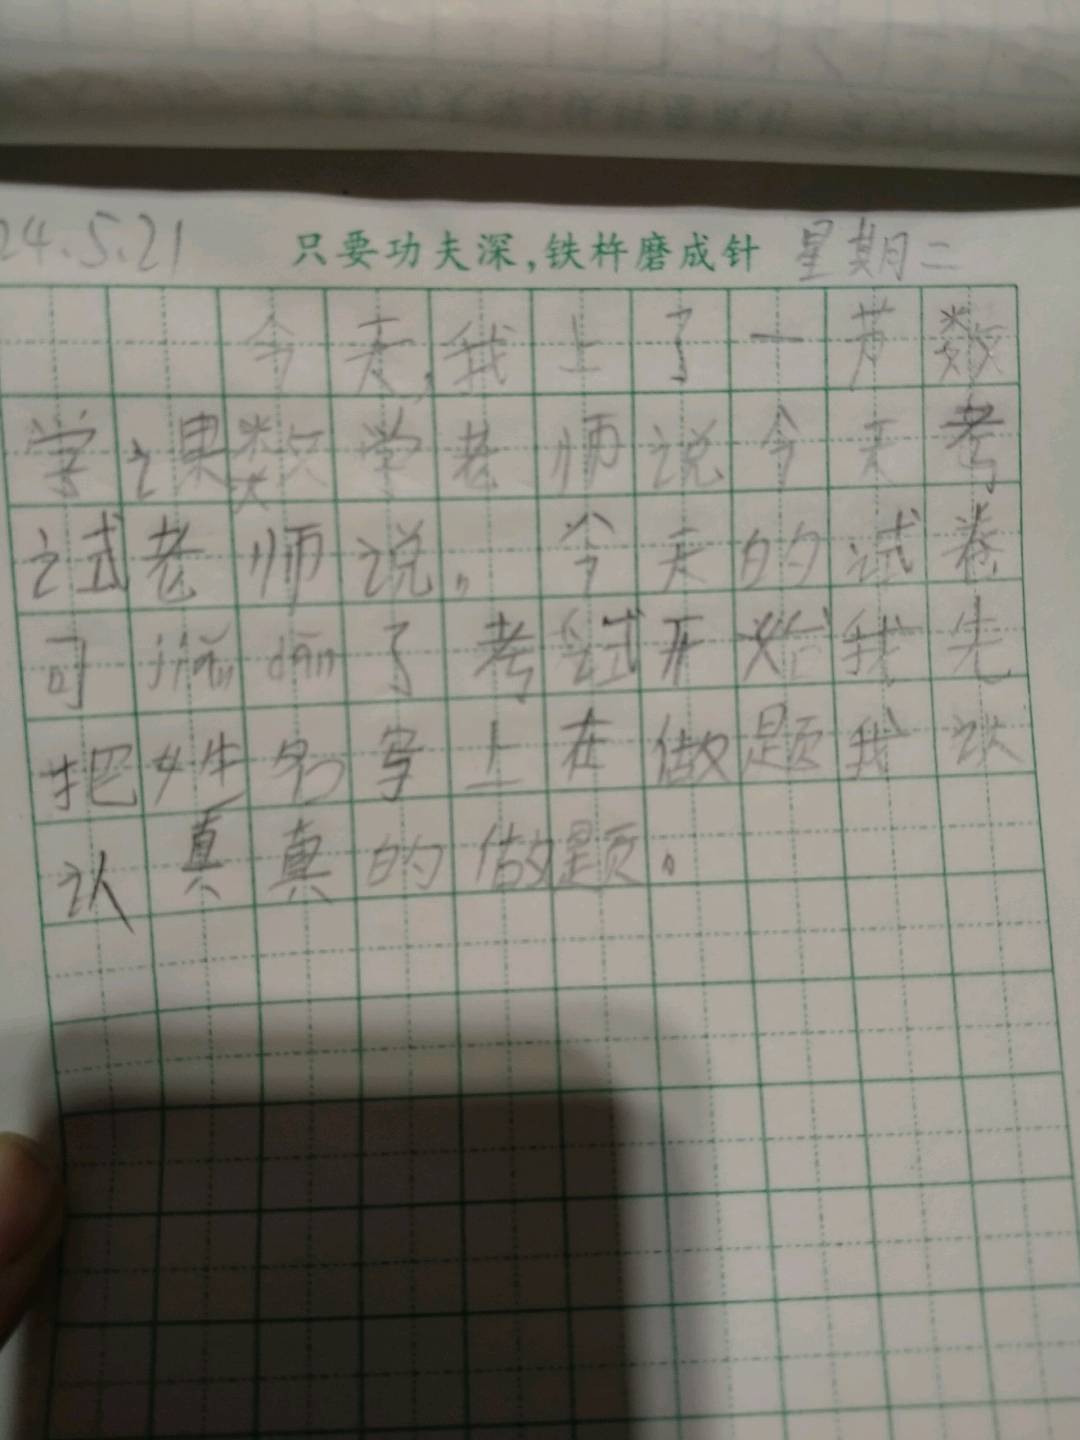 24.5.21 只要功夫深,铁杵磨成针 星期二
今天,我上了一节数
学课数学老师说今天考
试老师说。今天的试卷
可jiǎn dān了考试开始我先
把姓名写上在做题我认
认真真的做题。